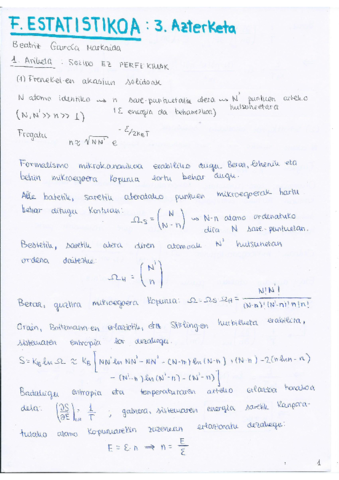 F. ESTATISTIKOA: 3. Azterketa
Beatriz García Markaida
1. Ariketa: SOLIDO EZ PERFEKTUAK
(1) Frenkel-en akatsun solidoak
N atomo identiko → n sare-puntuetatik atera → N' puntuen arteko
(N, N' >> n >> 1) (ε energia da beharrezkoa) hutsuneetara
Frogatu n ≈ √NN' e^(-ε/2k_BT)
Formalismo mikrokanonikoa erabiliko dugu. Beraz, lehenik eta
behin mikroegoera kopurua lortu behar dugu.
Alde batetik, saretik ateratako puntuen mikroegoerak hartu
behar ditugu kontuan: Ω_S = (N / N-n) → N-n atomo ordenatuko
dira N sare-puntuetan.
Bestetik, saretik atera diren atomoak N' hutsunetan
ordena daitezke Ω_H = (N' / n)
Beraz, guztira mikroegoera kopurua: Ω = Ω_S Ω_H = N!N'! / (N-n)!(N'-n)!n!n!
Orain, Boltzmann-en erlaziotik, eta Stirling-en hurbilketa erabiliz,
sistemaren entropia lor dezakegu.
S = k_B ln Ω ≈ k_B [NN' ln NN' - NN' - (N-n) ln(N-n) + (N-n) - 2(n ln n - n)
- (N'-n) ln(N'-n) + (N'-n)]
Badakigu entropia eta tenperaturaren arteko erlazioa honakoa
dela: (∂S/∂E) = 1/T, gainera, sistemaren energia saretik kanpora-
tutako atomo kopuruarekin zuzenean erlazionatu dezakegu:
E = ε·n → n = E/ε
1